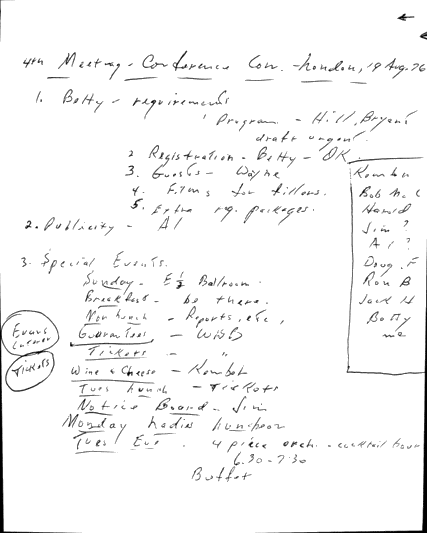 4th Meeting - Conference Com. - London, 19 Aug. 76
1. Betty - requirements
1 Program - Hill, Bryant
draft urgent.
2 Registration - Betty - OK.
3. Guests - Wayne
4. Films for fillers.
5. Extra reg. packages.
2. Publicity - Al
Bob Mc C
Harold
Jim ?
Al ?
Doug. F
Ron B
Jack H
Betty
me
3. Special Events.
Sunday - E ½ Ballroom.
Breakfast - be there.
lunch - Reports, etc,
Guarantees - WDB
Tickets - "
Wine & Cheese -
Tues lunch - Tickets
Notice Board - Jim
Monday Ladies Luncheon
Tues Eve. 4 piece orch. - cocktail hour
6.30 - 7:30
Buffet
Evans
Tickets